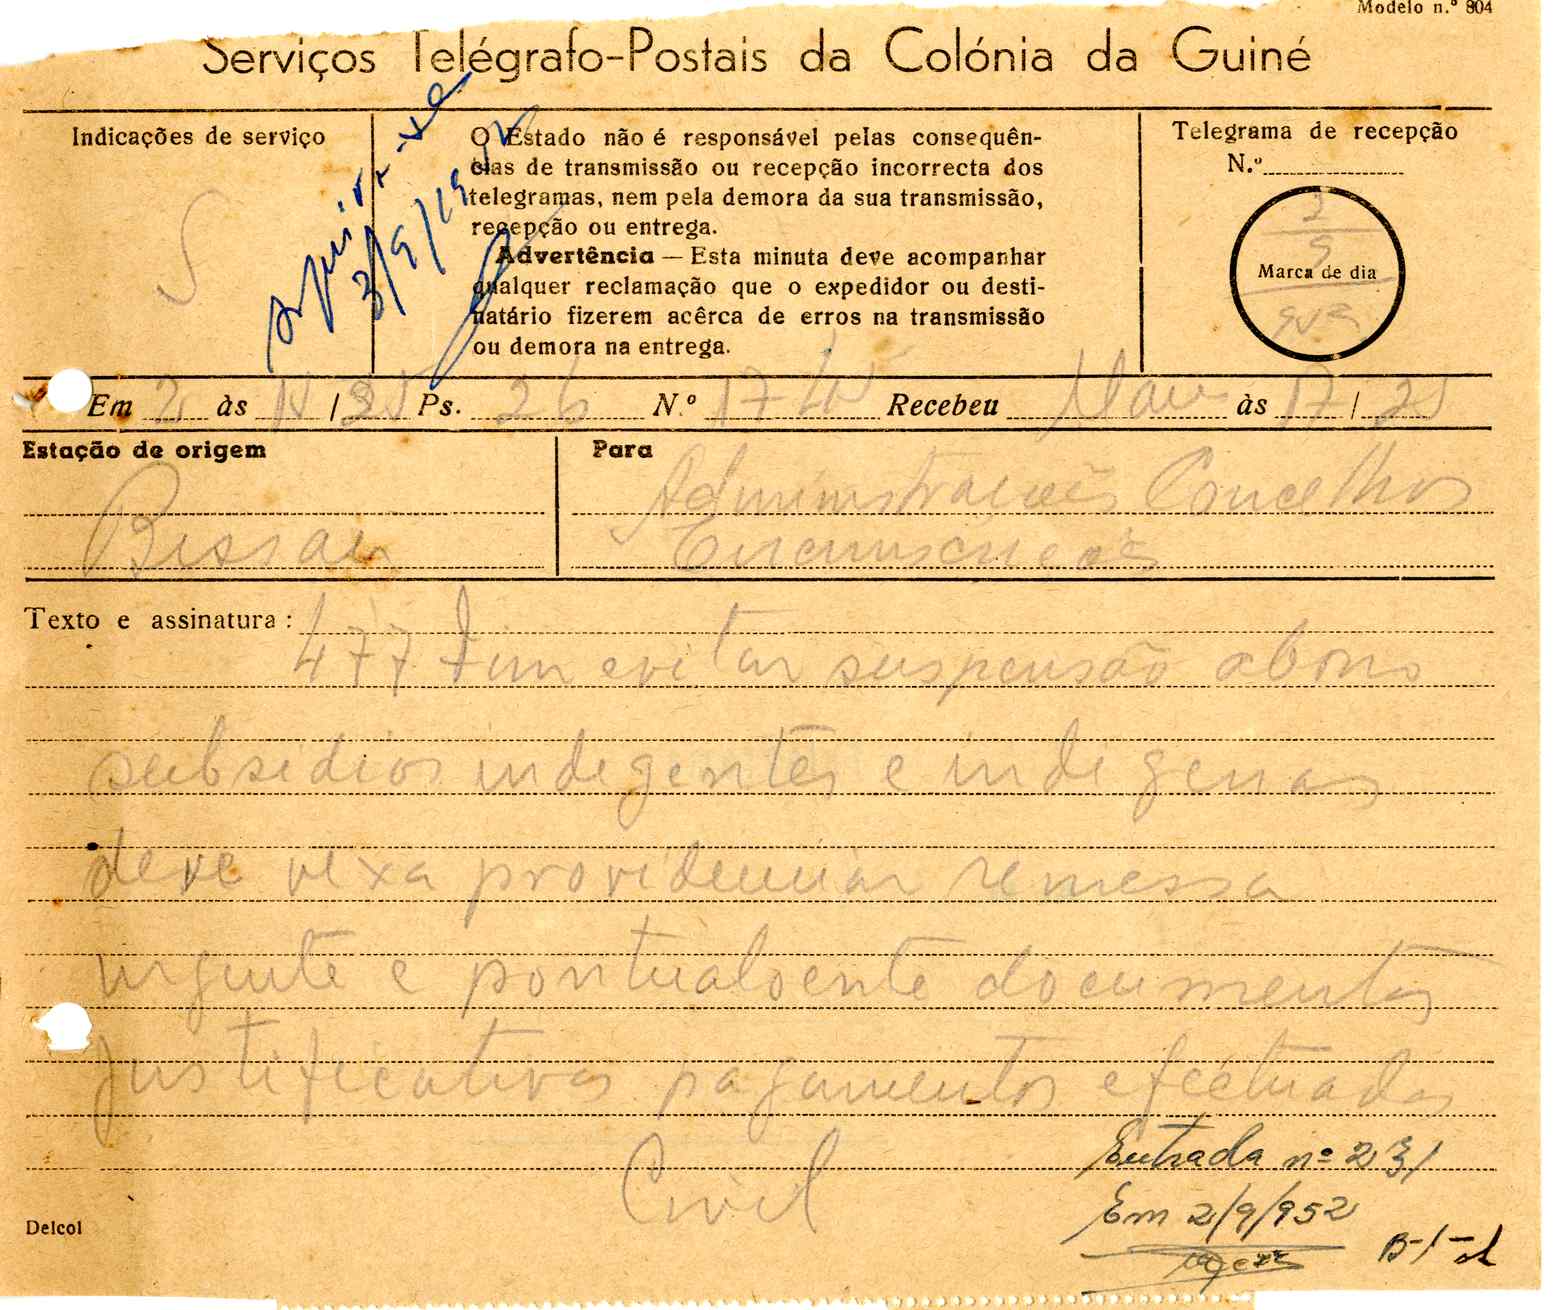 Modelo n.º 804
Serviços Telégrafo-Postais da Colónia da Guiné
Indicações de serviço
O Estado não é responsável pelas consequên-
cias de transmissão ou recepção incorrecta dos
telegramas, nem pela demora da sua transmissão,
recepção ou entrega.
Advertência — Esta minuta deve acompanhar
qualquer reclamação que o expedidor ou desti-
natário fizerem acêrca de erros na transmissão
ou demora na entrega.
Arquive-se
3/9/1952
Telegrama de recepção
N.º
2
9
Marca de dia
Em 2 às / Ps. 26 N.º Recebeu às 17/25
Estação de origem
Bissau
Para
Administrações Concelhos
Circunscrições
Texto e assinatura:
477 Fim evitar suspensão abono
subsidios indegentes e indigenas
deve vexa providenciar remessa
urgente e pontualoente documentos
justificativos pagamentos efectuados
Civil
Entrada nº 231
Em 2/9/952
B-1-d
Delcol